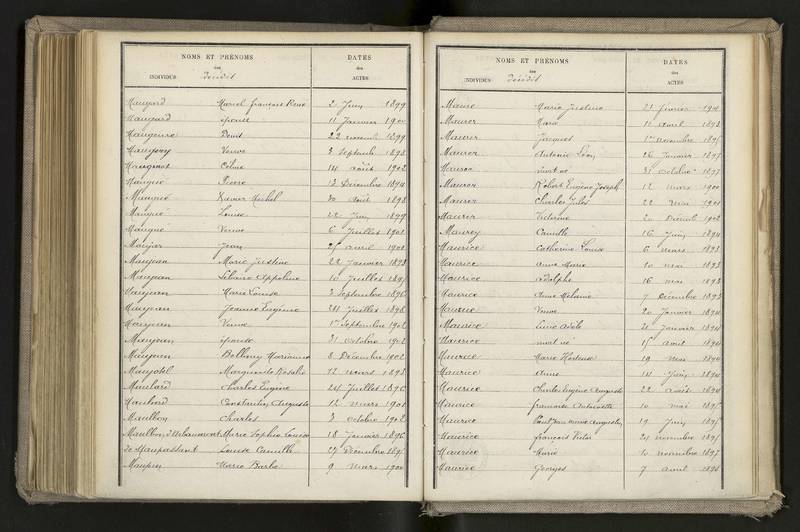 NOMS ET PRÉNOMS
des
INDIVIDUS Décédés
DATES
des
ACTES
Maugard Marcel François René 2 Juin 1899
Maugard épouse 11 Janvier 1900
Maugenre Denis 22 novemb. 1899
Maugery Veuve 3 Septemb. 1898
Mauginot Céline 14 août 1902
Maugué Pierre 13 Décembre 1894
Maugué Xavier Michel 30 Août 1898
Maugué Louise 22 Juin 1899
Maugué Veuve 6 Juillet 1901
Maujar Jean 25 avril 1902
Maujean Marie Justine 22 Janvier 1893
Maujean Appoline 10 Juillet 1895
Maujean Marie Louise 3 Septembre 1896
Maujean Jeanne Eugénie Juillet 1898
Maujean Veuve 1er Septembre 1902
Maujean épouse 31 Octobre 1902
Maujean Marianne 8 Décembre 1902
Maujotel Marguerite Rosalie 12 mars 1893
Maulard Charles Eugène 24 Juillet 1896
Maulbon Constantin Auguste 12 mars 1901
Maulbon Charles 3 octobre 1902
Maulbon d'Arbaumont Marie Sophie Louise 18 Janvier 1896
de Maupassant Louise Camille 27 Décembre 1895
Maupin Marie Barbe 9 mars 1900
NOMS ET PRÉNOMS
des
INDIVIDUS Décédés
DATES
des
ACTES
Maure Marie Justine 21 février 1901
Maurer Marie 11 Avril 1893
Maurer Jacques 1er novembre 1895
Maurer Antoine Léon 26 Janvier 1897
Maurer mort né 31 octobre 1897
Maurer Robert Eugène Joseph 12 mars 1900
Maurer Charles Jules 22 mai 1901
Maurer Victorine 20 Décemb. 1902
Maurey Camille 16 Juin 1894
Maurice Catherine Louise 6 mars 1893
Maurice Anne Marie 10 mai 1893
Maurice Adolphe 16 mai 1893
Maurice Anne Mélanie 7 Décembre 1893
Maurice Veuve 20 Janvier 1894
Maurice Lucie Adèle 21 Janvier 1894
Maurice mort né 15 avril 1894
Maurice Marie Hortense 19 mai 1894
Maurice Anne 14 Juin 1894
Maurice Charles Eugène Auguste 22 Août 1894
Maurice Françoise Antoinette 10 mai 1895
Maurice Augustin 19 Juin 1895
Maurice François Victor 21 novembre 1895
Maurice Marie 10 novembre 1897
Maurice Georges 7 avril 1898